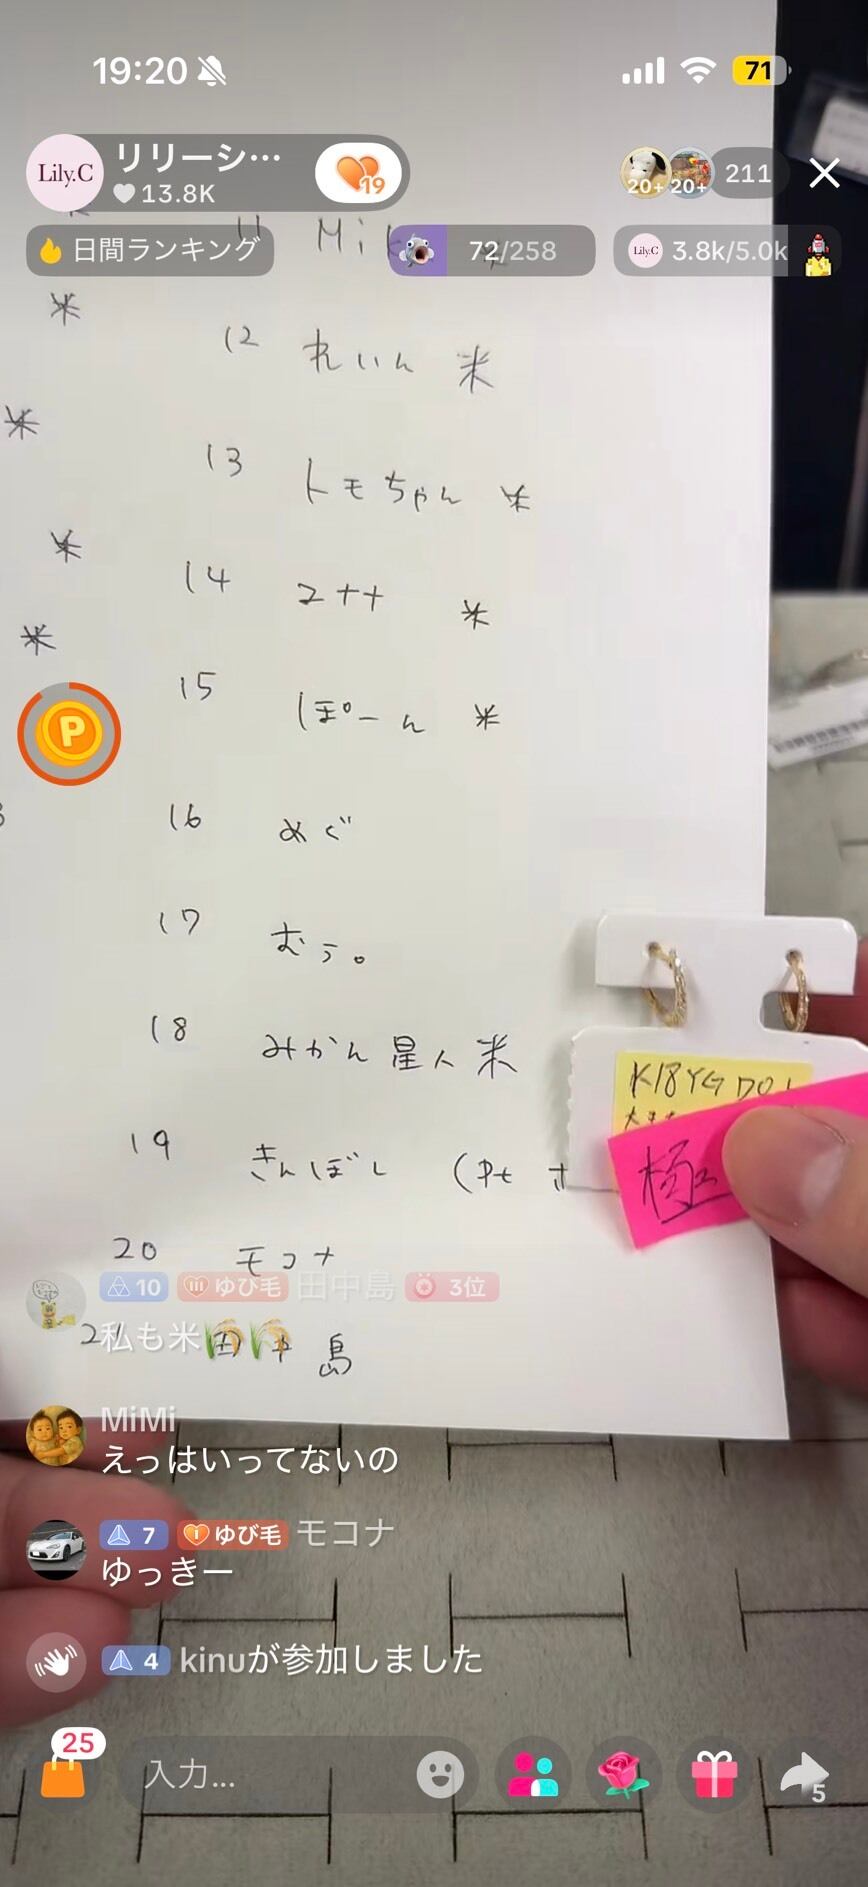 19:20
71
Lily.C
リリーシ…
13.8K
19
20+
20+
211
日間ランキング
72/258
Lily.C
3.8k/5.0k
12 れいん 米
13 トモちゃん 米
14 ユナナ 米
15 ぽーん 米
16 めぐ
17 むぅ。
18 みかん星人 米
19 きんぼし
20 モコナ
21 田中島
K18YG
極
10 ゆび毛 田中島 3位
私も米
MiMi
えっはいってないの
7 ゆび毛 モコナ
ゆっきー
4 kinuが参加しました
25
入力...
5